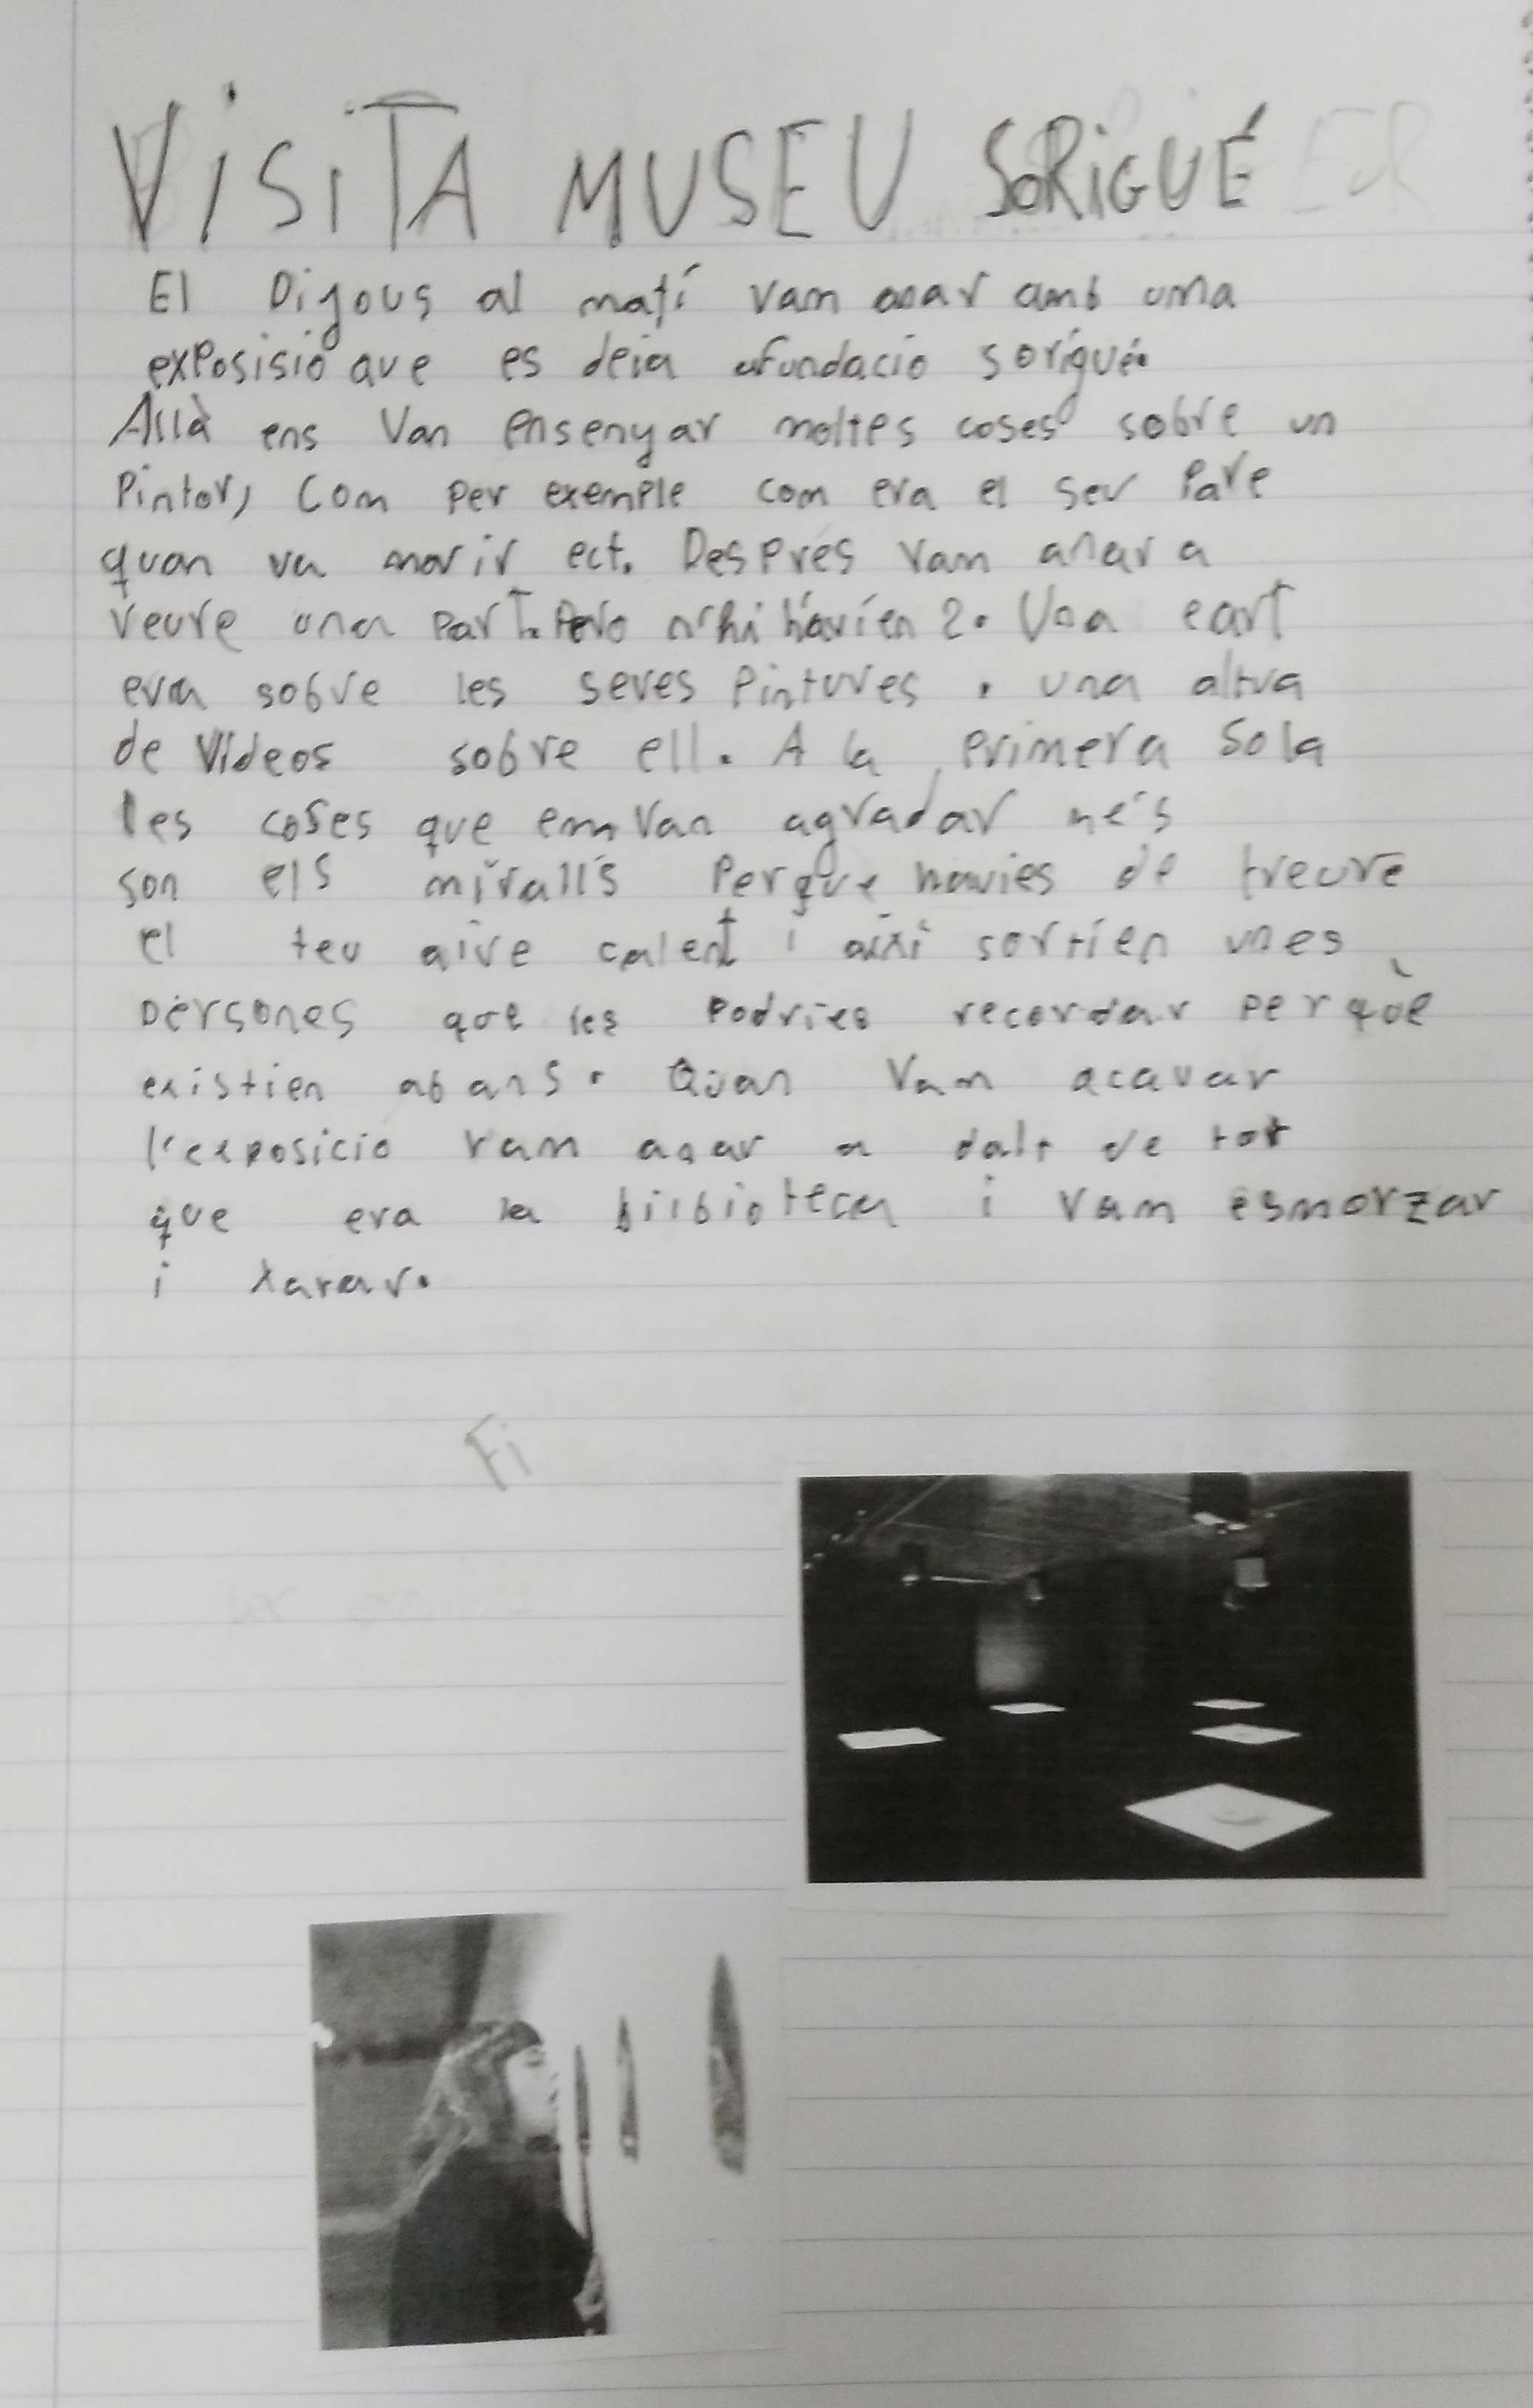 VISITA MUSEU SORIGUÉ
El Dijous al matí vam anar amb una
exposisio que es deia "fundacio sorigué"
Allà ens Van ensenyar moltes coses sobre un
Pintor, Com per exemple com era el seu Pare
quan va morir ect. Després vam anar a
veure una part. Pero n'hi havíen 2. Una part
era sobre les seves Pintures . una altra
de Vídeos sobre ell. A la primera sola
les coses que em van agradar més
son els miralls Perque havies de treure
el teu aire calent i així sortíen unes
persones que les podries recordar perquè
existien abans. Quan Vam acavar
l'exposicio vam anar a dalt de tot
que era la bilbioteca i vam esmorzar
i xarar.
Fi